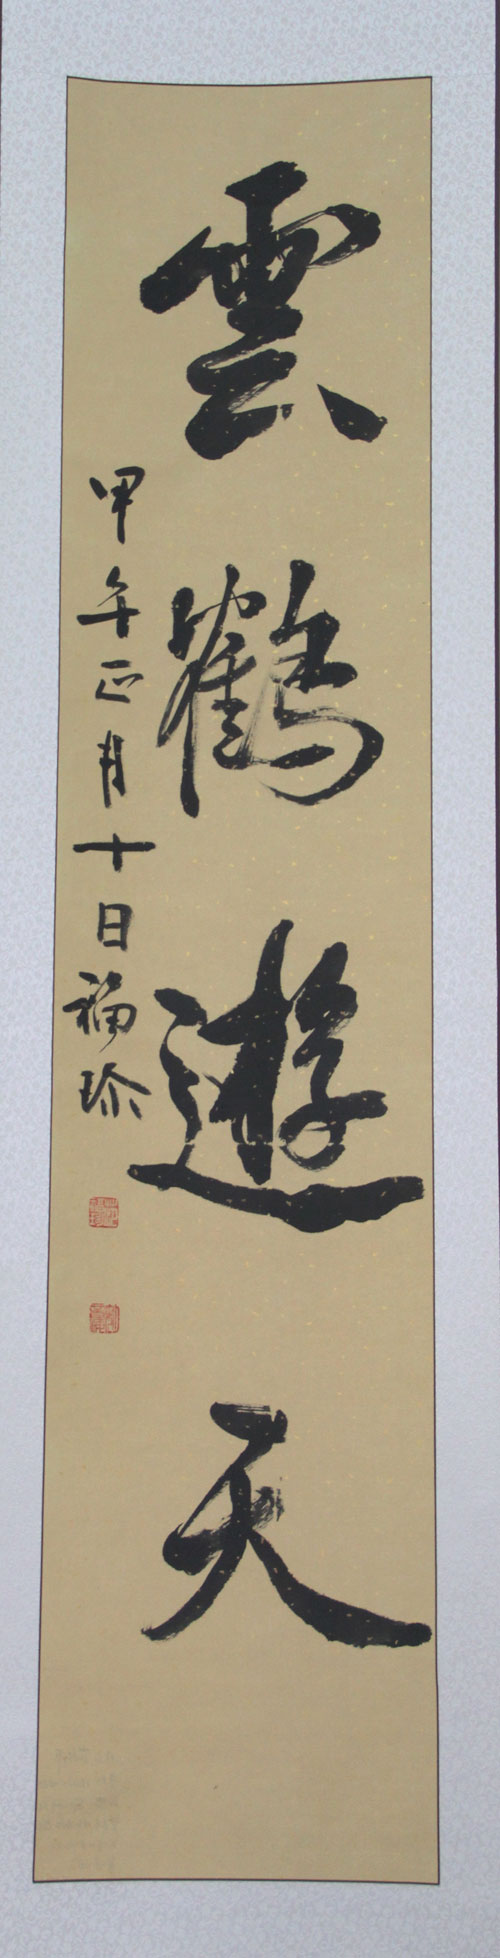 雲鶴遊天
甲午正月十日福珍